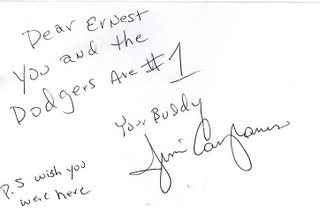 Dear Ernest
You and the
Dodgers Are #1
Your Buddy
Jim Campanis
P.S wish you
were here